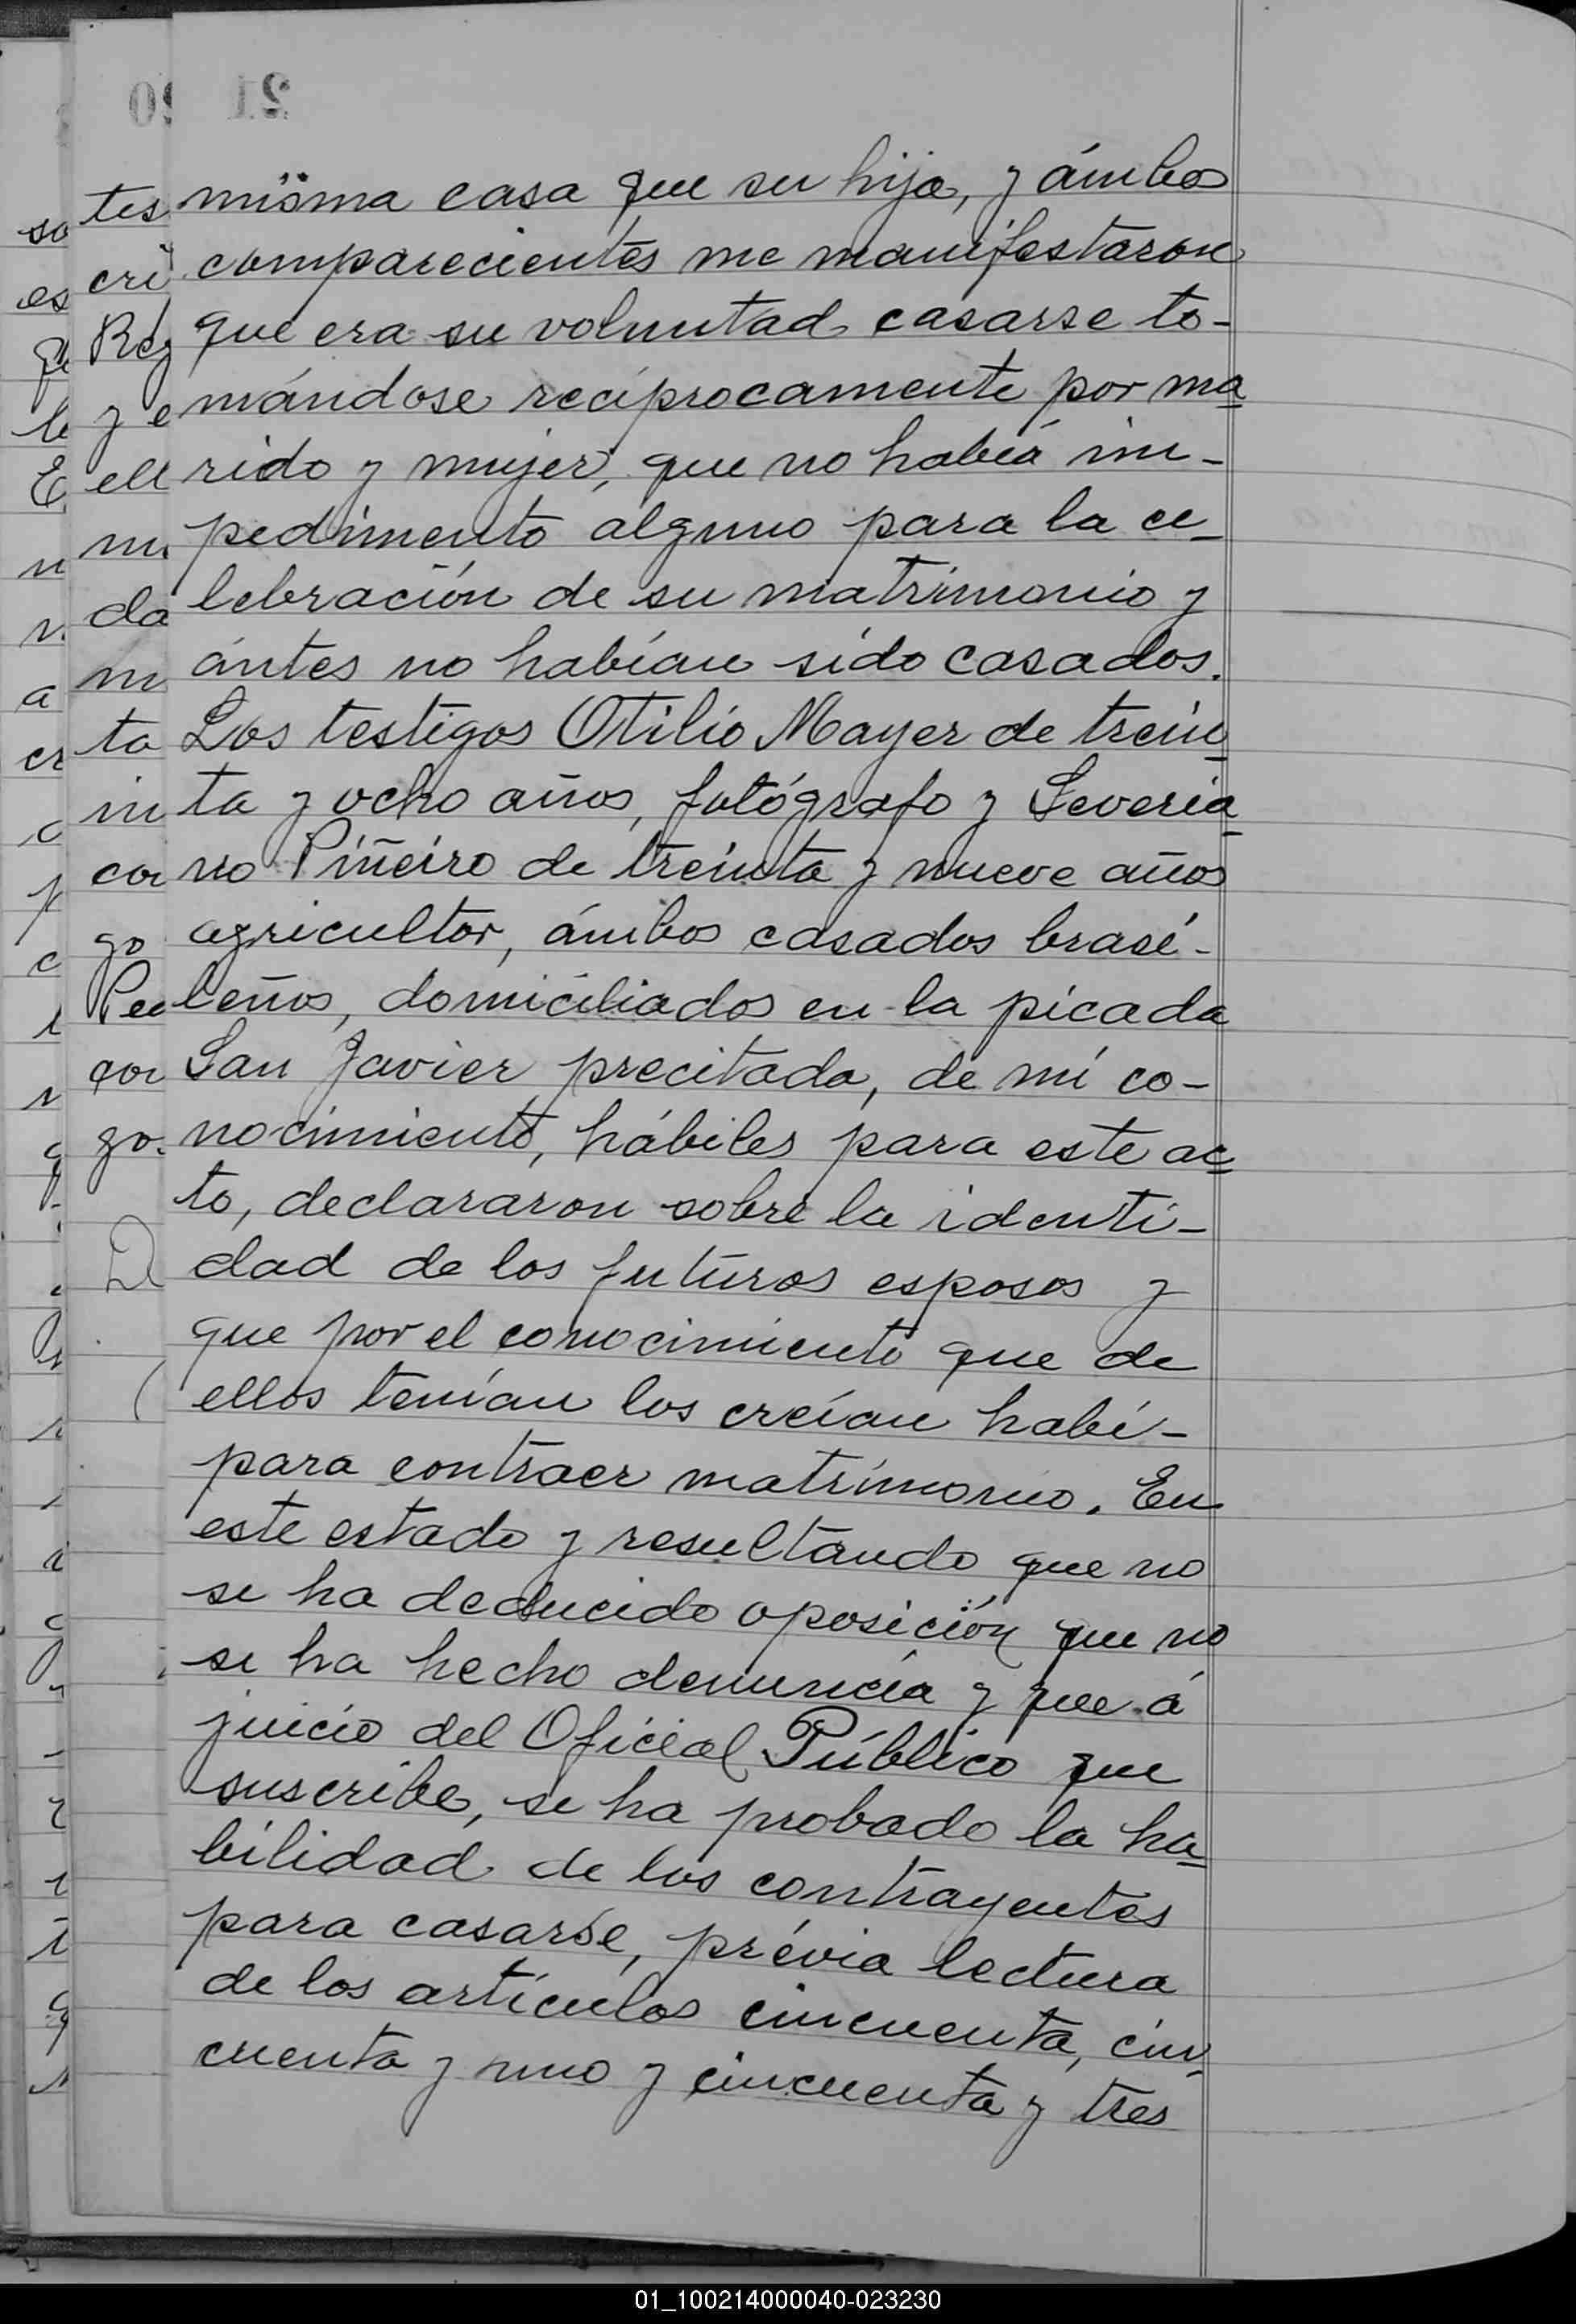 misma casa que su hija, y ámbos
comparecientes me manifestaron
que era su voluntad casarse to-
mándose recíprocamente por ma-
rido y mujer, que no había im-
pedimento alguno para la ce-
lebración de su matrimonio y
ántes no habían sido casados.
Los testigos Otilio Mayer de trein-
ta y ocho años, fotógrafo y Severia-
no Piñeiro de treinta y nueve años
agricultor, ámbos casados brasi-
leños, domiciliados en la picada
San Javier precitada, de mi co-
nocimiento, hábiles para este ac-
to, declararon sobre la identi-
dad de los futuros esposos y
que por el conocimiento que de
ellos tenían los creían habi-
para contraer matrimonio. En
este estado y resultando que no
se ha deducido oposición que no
se ha hecho denuncia y que á
juicio del Oficial Público que
suscribe, se ha probado la ha-
bilidad de los contrayentes
para casarse, prévia lectura
de los artículos cincuenta, cin-
cuenta y uno y cincuenta y tres
01_100214000040-023230